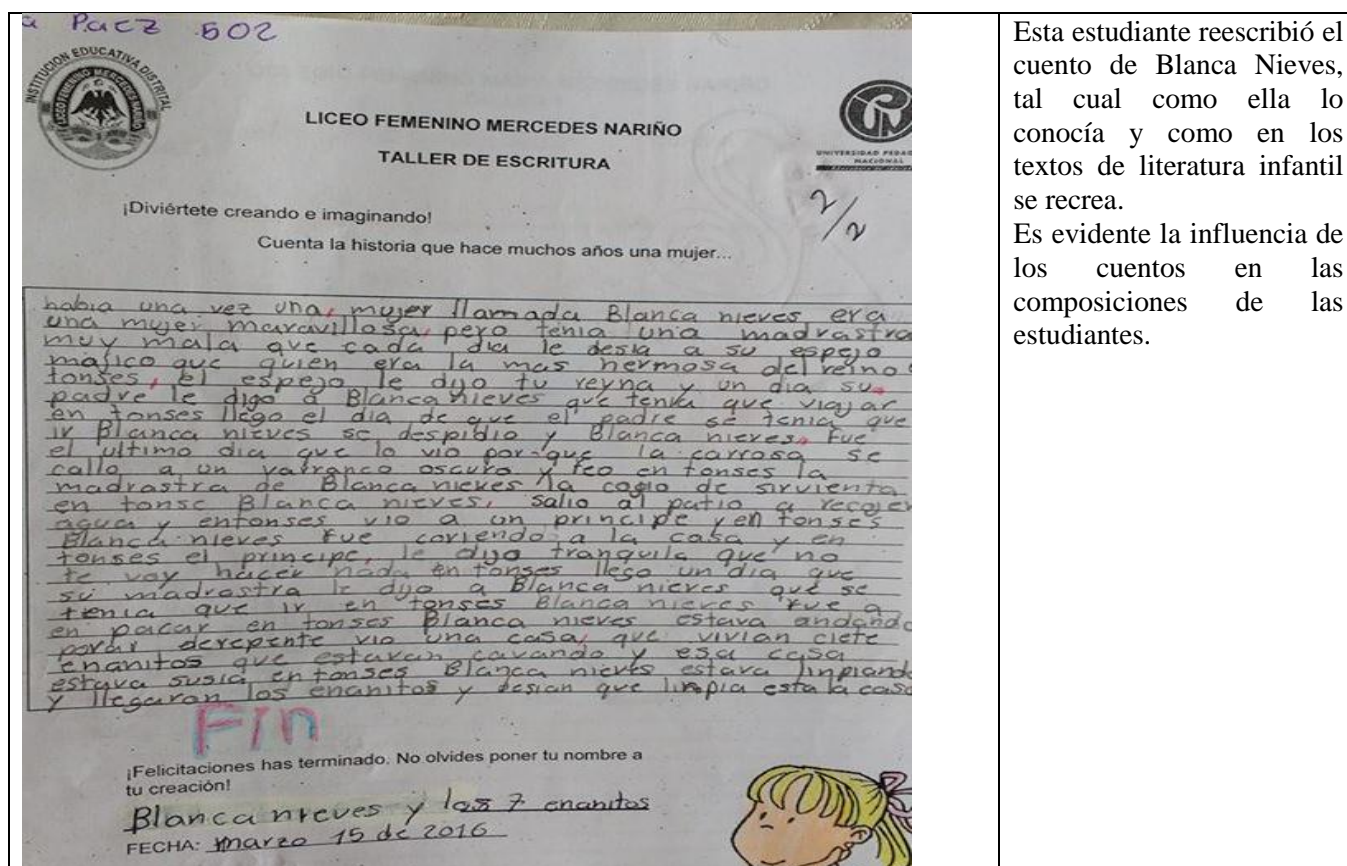 a Paez 502
INSTITUCION EDUCATIVA DISTRITAL
LICEO FEMENINO MERCEDES NARIÑO
LICEO FEMENINO MERCEDES NARIÑO
TALLER DE ESCRITURA
UNIVERSIDAD PEDAG
NACIONAL
2/2
¡Diviértete creando e imaginando!
Cuenta la historia que hace muchos años una mujer...
habia una vez una, mujer llamada Blanca nieves era
una mujer maravillosa, pero tenia una madrastra
muy mala que cada dia le desia a su espejo
majico que quien era la mas hermosa del reino
tonses, el espejo le dijo tu reyna y un dia su
padre le digo a Blanca nieves que tenia que viajar
en tonses llego el dia de que el padre se tenia que
ir Blanca nieves se despidio y Blanca nieves, fue
el ultimo dia que lo vio por-que la carrosa se
callo a un varranco oscuro y feo en tonses la
madrastra de Blanca nieves la cogio de sirvienta
en tonse Blanca nieves, salio al patio a recojer
agua y entonses vio a un principe y en tonses
Blanca nieves fue coriendo a la casa y en
tonses el principe, le dijo tranquila que no
te voy hacer nada en tonses llego un dia que
su madrastra le dijo a Blanca nieves que se
tienia que ir en tonses Blanca nieves fue a
en pacar en tonses Blanca nieves estava andando
porai derepente vio una casa, que vivian ciete
enanitos que estavan cavando y esa casa
estava susia en tonses Blanca nieves estava linpiando
y llegaron los enanitos y desian que linpia esta la casa
Fin
¡Felicitaciones has terminado. No olvides poner tu nombre a
tu creación!
Blanca nieves y las 7 enanitos
FECHA: marzo 15 de 2016
Esta estudiante reescribió el
cuento de Blanca Nieves,
tal cual como ella lo
conocía y como en los
textos de literatura infantil
se recrea.
Es evidente la influencia de
los cuentos en las
composiciones de las
estudiantes.